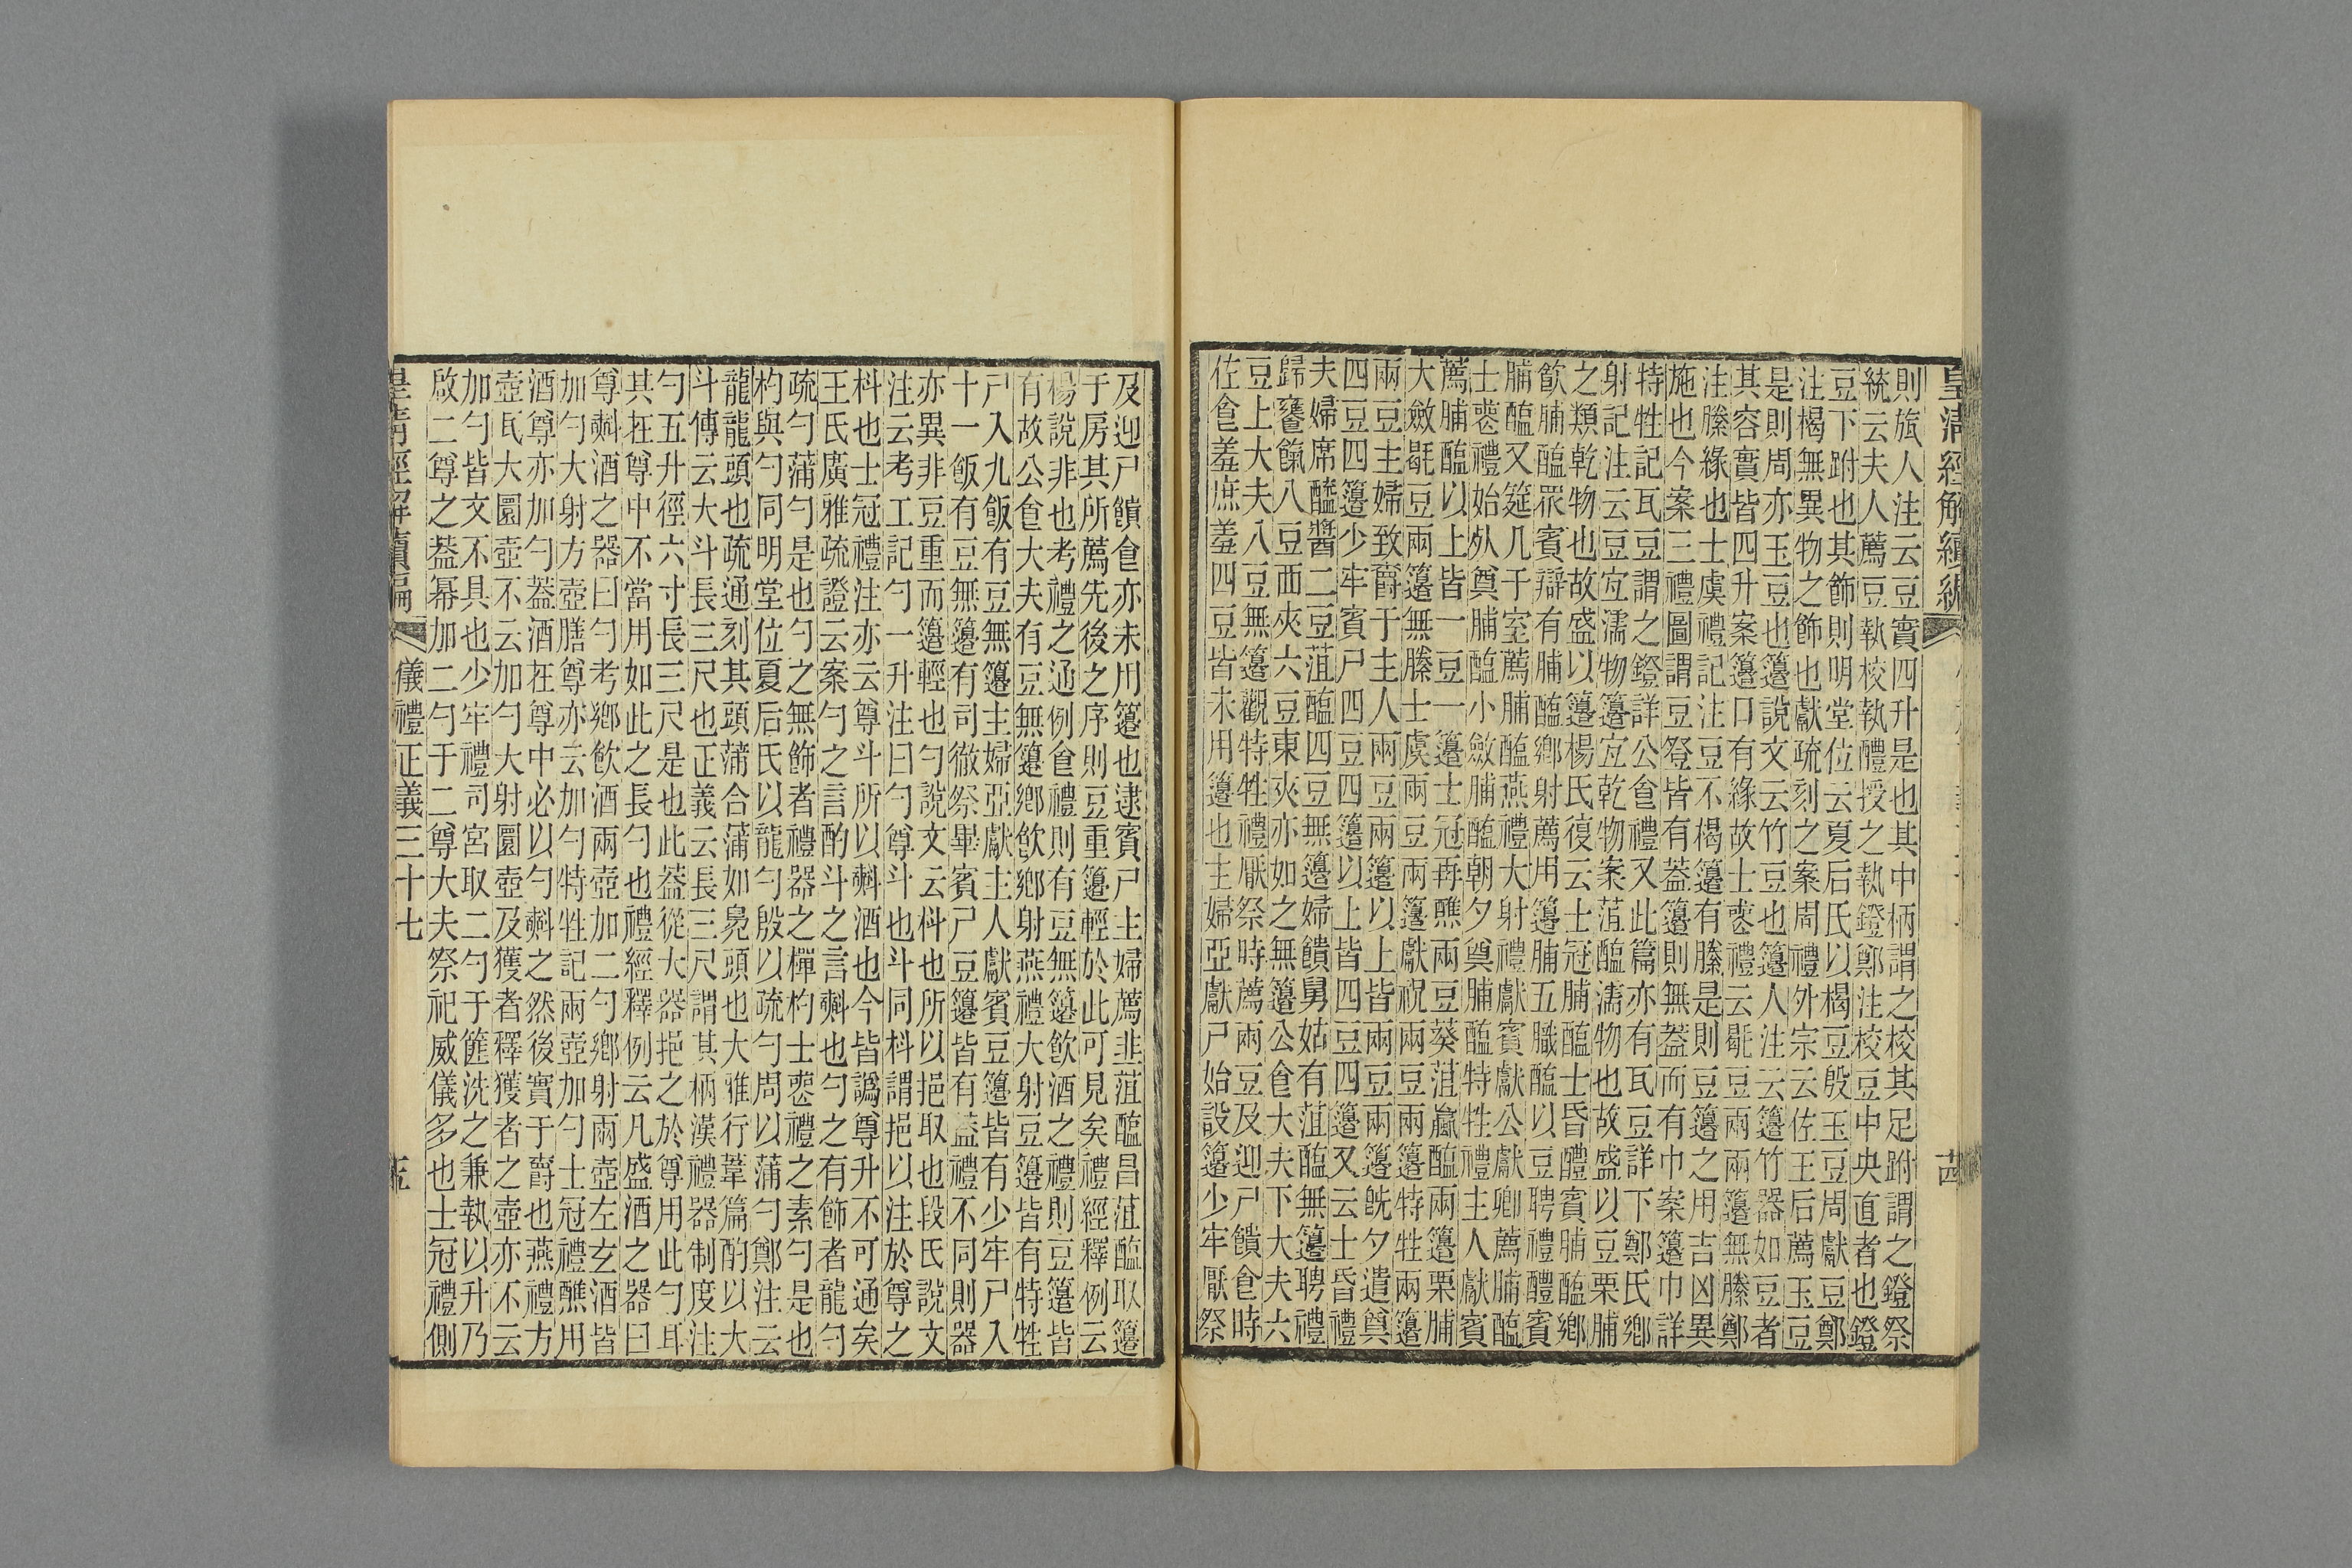 皇清經解續編
則旊人注云豆實四升是也其中柄謂之校其足跗謂之鐙祭
統云夫人薦豆執校執醴授之執鐙鄭注校豆中央直者也鐙
豆下跗也其飾則明堂位云夏后氏以楬豆殷玉豆周獻豆鄭
注楬無異物之飾也獻疏刻之案周禮外宗云佐王后薦玉豆
是則周亦玉豆也籩說文云竹豆也籩人注云籩竹器如豆者
其容實皆四升案籩口有緣故士喪禮云毼豆兩兩籩無縢鄭
注縢緣也士虞禮記注豆不楬籩有縢是則豆籩之用吉凶異
施也今案三禮圖謂豆豋皆有蓋籩則無蓋而有巾案籩巾詳
特牲記瓦豆謂之鐙詳公食禮又此篇亦有瓦豆詳下鄭氏鄉
射記注云豆宐濡物籩宐乾物案菹醢濡物也故盛以豆栗脯
之類乾物也故盛以籩楊氏復云士冠脯醢士昏醴賓脯醢鄉
飲脯醢眾賓辯有脯醢鄉射薦用籩脯五膱醢以豆聘禮醴賓
脯醢又筵几于室薦脯醢燕禮大射禮獻賓獻公獻卿薦脯醢
士喪禮始死奠脯醢小斂脯醢朝夕奠脯醢特牲禮主人獻賓
薦脯醢以上皆一豆一籩士冠再醮兩豆葵菹蠃醢兩籩栗脯
大斂毼豆兩籩無縢士虞兩豆兩籩獻祝兩豆兩籩特牲兩籩
兩豆主婦致爵于主人兩豆兩籩以上皆兩豆兩籩旣夕遣奠
四豆四籩少牢賓尸四豆四籩以上皆四豆四籩又云士昏禮
夫婦席醯醬二豆菹醢四豆無籩婦饋舅姑有菹醢無籩聘禮
歸饔餼八豆西夾六豆東夾亦如之無籩公食大夫下大夫六
豆上大夫八豆無籩觀特牲禮厭祭時薦兩豆及迎尸饋食時
佐食羞庶羞四豆皆未用籩也主婦亞獻尸始設籩少牢厭祭
及迎尸饋食亦未用籩也逮賓尸主婦薦韭菹醢昌菹醢取籩
于房其所薦先後之序則豆重籩輕於此可見矣禮經釋例云
楊說非也考禮之通例食禮則有豆無籩飲酒之禮則豆籩皆
有故公食大夫有豆無籩鄉飲鄉射燕禮大射豆籩皆有特牲
尸入九飯有豆無籩主婦亞獻主人獻賓豆籩皆有少牢尸入
十一飯有豆無籩有司徹祭畢賓尸豆籩皆有葢禮不同則器
亦異非豆重而籩輕也勺說文云枓也所以挹取也段氏說文
注云考工記勺一升注曰勺尊斗也斗同枓謂挹以注於尊之
枓也士冠禮注亦云尊斗所以㪺酒也今皆譌尊升不可通矣
王氏廣雅疏證云案勺之言酌斗之言㪺也勺之有飾者龍勺
疏勺蒲勺是也勺之無飾者禮器之樿杓士喪禮之素勺是也
杓與勺同明堂位夏后氏以龍勺殷以疏勺周以蒲勺鄭注云
龍龍頭也疏通刻其頭蒲合蒲如鳧頭也大雅行葦篇酌以大
斗傳云大斗長三尺也正義云長三尺謂其柄漢禮器制度注
勺五升徑六寸長三尺是也此葢從大器挹之於尊用此勺耳
其在尊中不當用如此之長勺也禮經釋例云凡盛酒之器曰
尊㪺酒之器曰勺考鄉飲酒兩壺加二勺鄉射兩壺左玄酒皆
加勺大射方壺膳尊亦云加勺特牲記兩壺加勺士冠禮醮用
酒尊亦加勺蓋酒在尊中必以勺㪺之然後實于爵也燕禮方
壺瓦大圜壺不云加勺大射圜壺及獲者釋獲者之壺亦不云
加勺皆文不具也少牢禮司宮取二勺于篚洗之兼執以升乃
啟二尊之蓋冪加二勺于二尊大夫祭祀威儀多也士冠禮側
皇清經解續編　儀禮正義三十七